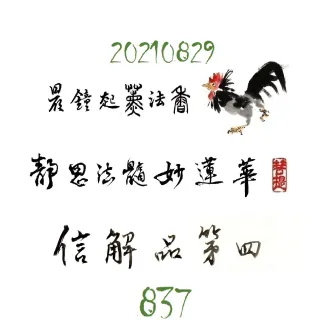 20210829
晨鐘起薰法香
靜思法髓妙蓮華
信解品第四
837